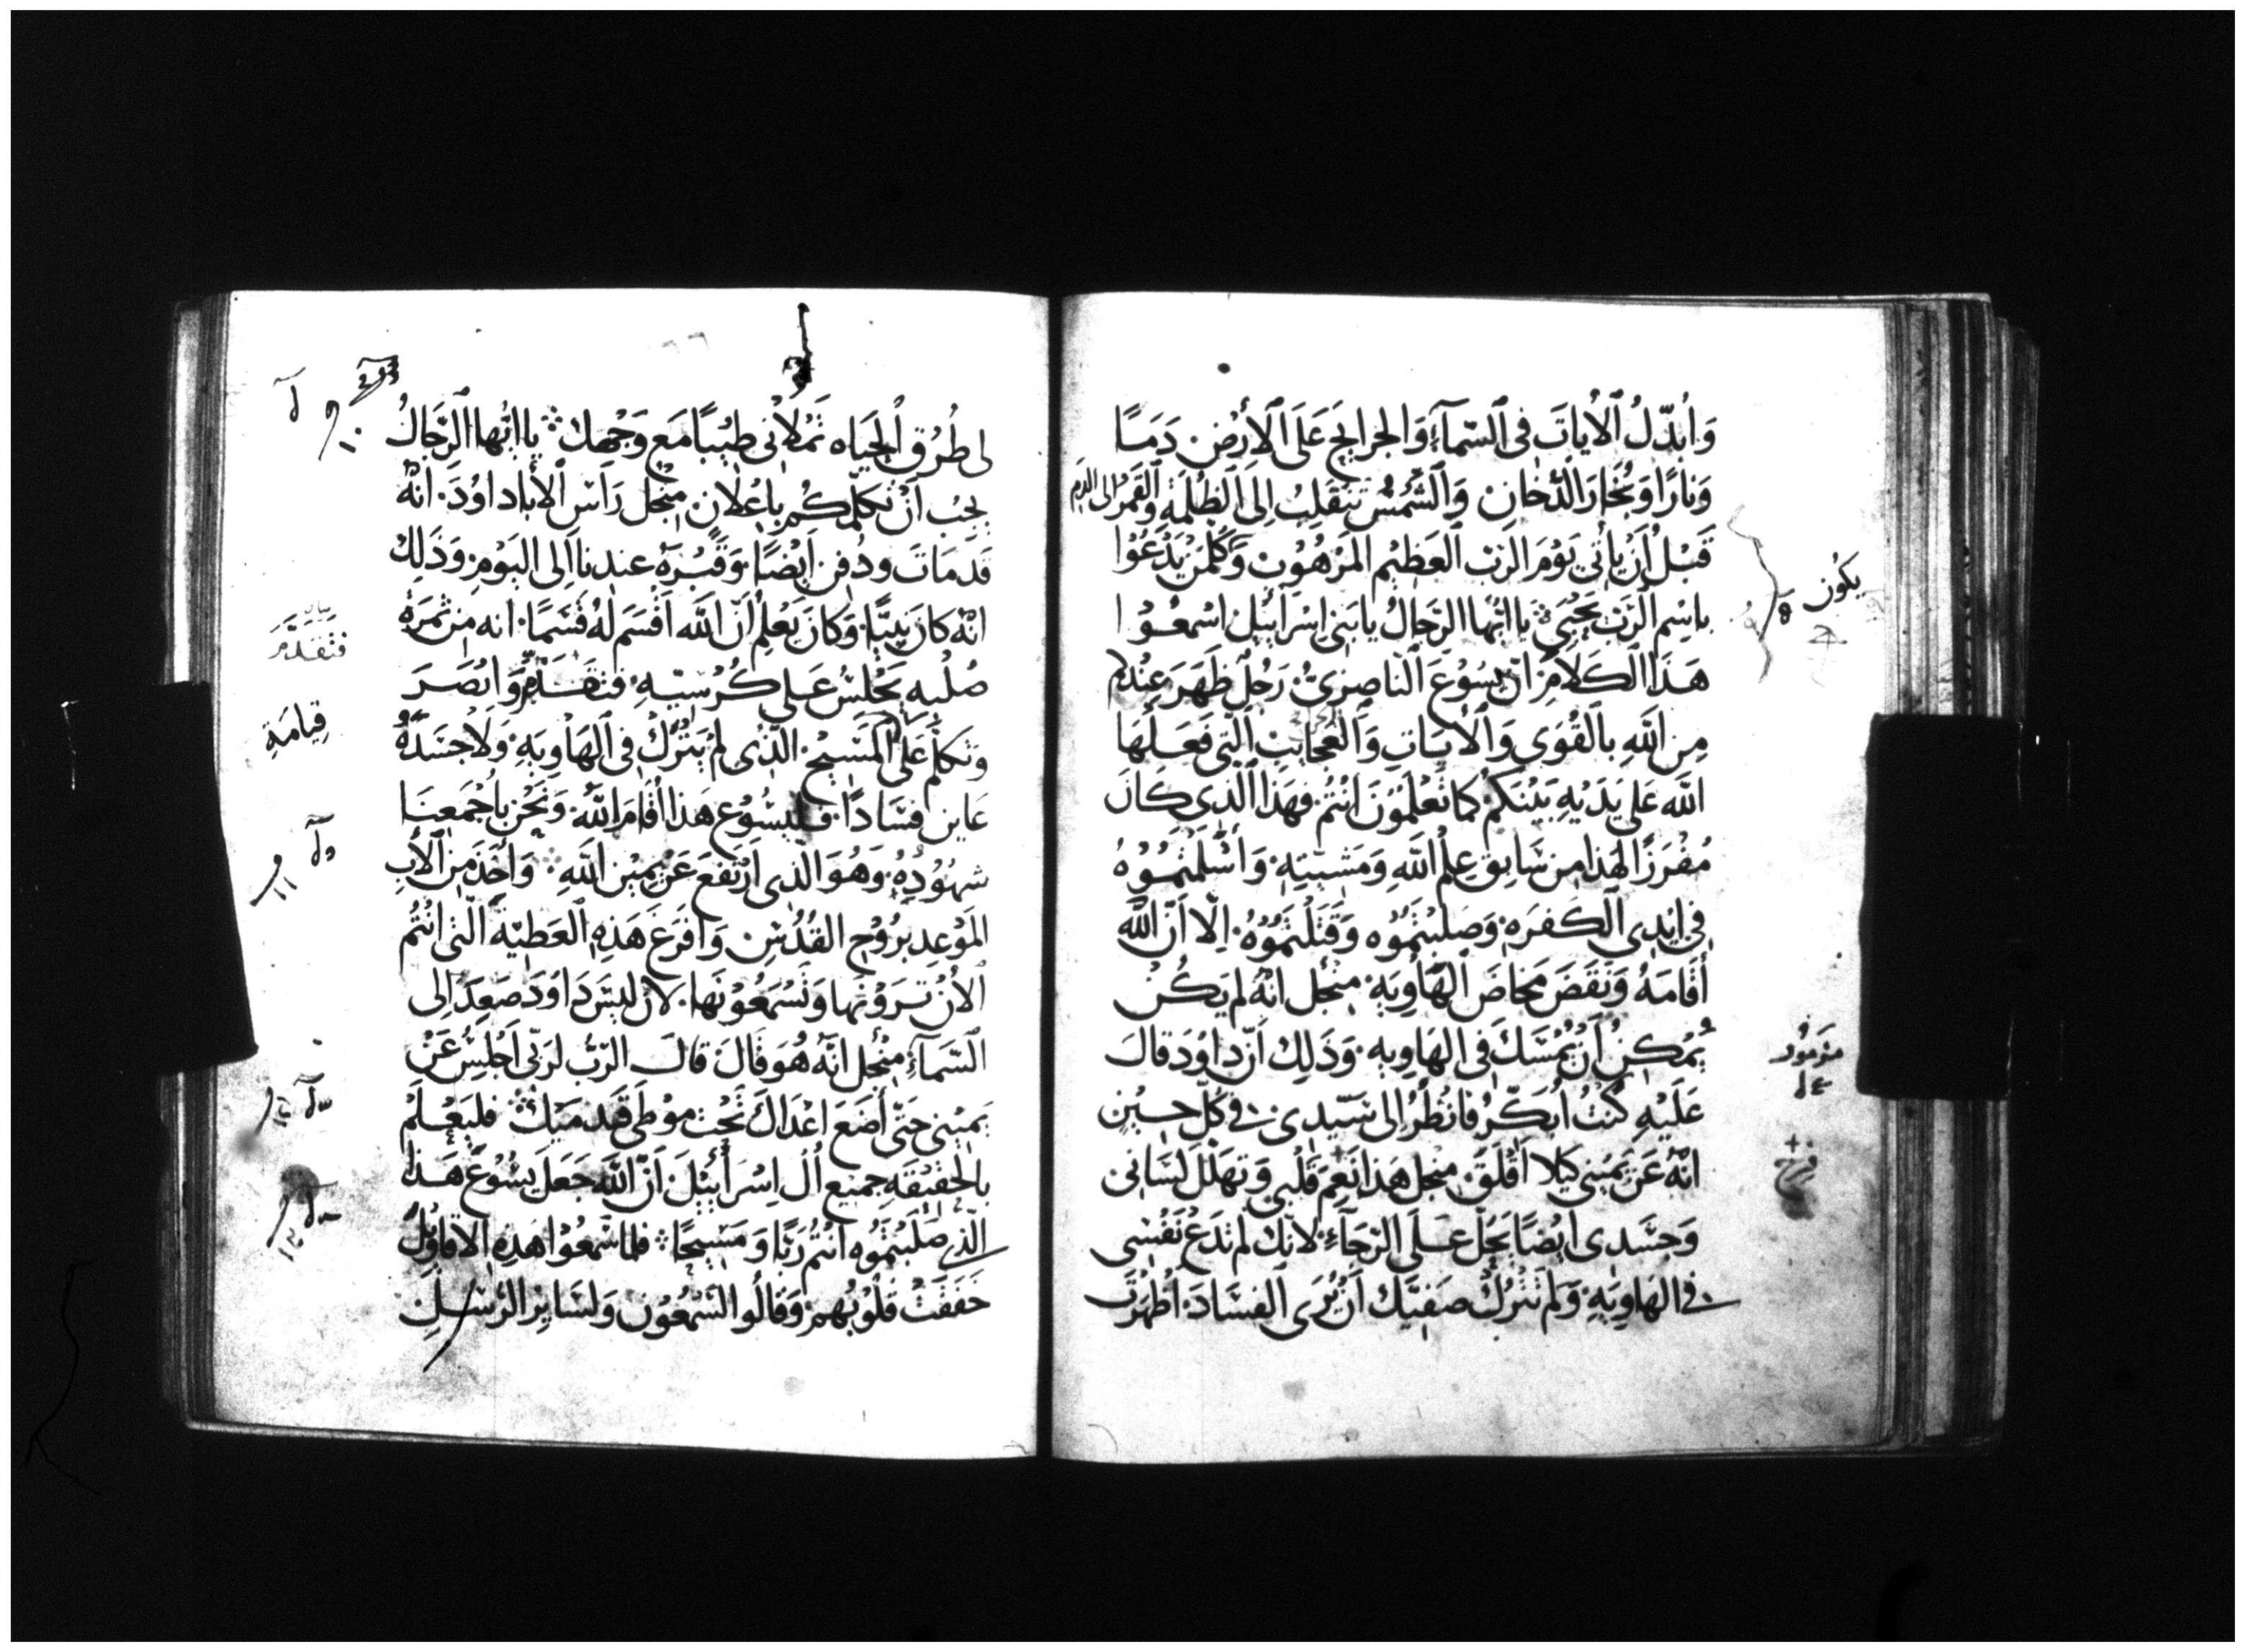 وَأُبَدِّلُ ٱلْاٰيَاتَ فِى ٱلسَّمَآءِ وَالجَرَايِحَ عَلَى ٱلأَرْضِ دَمًا
وَنَارًا وَبُخَارَ الدُّخَانِ وَٱلشَّمْسُ تَنْقَلِبُ اِلَى ٱلظُّلْمَةِ وَٱلْقَمَرُ اِلى الدَمِ
قَبْلَ أَنْ يَأْتِيَ يَوْمَ الرَّبِّ ٱلعَظِيْمِ المَرْهُوْبْ وَكُلَّمَنْ يَدْعُوْا
بِاسِمِ ٱلرَّبِّ يَحْيَى يا ايُّهَا الرِّجَالُ يَا بَنِى اِسْرَايِيْلَ اسْمَعُوْا
هَذَا الكَلَامَ اَنّ يَسُوْعَ النّاصِرِىَّ رَجُلٌ ظَهَرَ عِنْدِكُم
مِنَ اللّٰهِ بِالْقُوَى وَٱلْأيَاتِ وَٱلْعَجايِبْ ٱلَّتِى فَعَلَهَا
اللّٰه عَلى يَدَيْهِ بَيْنَكُمْ كَمَا تَعْلَمُوْنَ انْتُمْ فهَذَا ٱلَّذِى كَانَ
مُفْرَزًا لهَذَا مِن سَابِق عِلْمِ اللّٰهِ وَمَشِيَّتِهِ وَأَسْلَمْتُمُوْهُ
فِى اَيْدِى الكَفَرَهِ وَصَلَبْتُمُوْه وَقَتَلْتُمُوْهُ اِلّا اَنّ اللّٰه
أَقَامَهُ وَنَقَضَ مَخَاضَ ٱلْهَاوِيَةِ مِنْجُلِ انّهُ لم يَكُنْ
يُمْكِنُ اَنْ يُمْسَكَ فِى الهَاوِيهِ وَذَلِكَ اَنّ دَاوُدَ قَالَ
عَلَيْهِ كُنْتُ اُبَكِّرُ فَانْظُرُ اِلى سَيّدِى فِى كُلّ حِيْنٍ
انّهُ عَنْ يَمِيْنِى كَيْلَا اَقْلَقَ مِنْجل هَذَا نَعِمَ قَلْبِى وَتهَلّلَ لسَانِى
وَجَسَدِى ايْضًا يَحُلّ عَلَى الرّجَآءِ لانّكَ لم تَدَعْ نَفْسِى
فِى الهَاوِيَةِ وَلم تَتْرُكْ صَفِيَّكَ اَنْ يُرَى الفسَادَ اَظْهَرْتَ
يَكُون
فرح
لى طُرُق اُلْحَيَاه تَمْلَأنِى طِيْبًا مَعَ وَجْهِكَ يا ايُّها الرِّجَالُ
يَجِبُ اَنْ نكَلِّمَكُم باِعْلانٍ مِنْجل رَأسِ ٱلأَباءِ دَاوُدَ انّهُ
قَد مَاتَ ودُفِنَ اَيْضًا وَقَبْرَهُ عِندنا اِلى اليَوْمِ وَذَلِك
انّهُ كانَ نَبِيًّا وَكانَ يَعْلمُ اَنّ اللّٰه اَقْسَمَ لَهُ قَسَمًا انه مِن ثَمرَةِ
صُلْبِهِ يَجْلِسُ عَلى كُرْسِيِّهِ فتَقَدَّمَ وَابْصَرَ
وتكلّم عَلَى المَسِيْحِ الَّذِى لم يُتْرَكْ فِى الهَاوِيَةِ وَلَا جَسَدَهُ
عَاينَ فسَادًا فليَسُوْع هَذا اَقَامَ اللّٰهُ وَنَحْن باَجْمَعِنَا
شهُوْدُهُ وَهُوَ الَّذِى ارْتَفَعَ عَن يَمِيْن اللّٰهِ وَاخَذَ مِنَ ٱلأَبِ
المَوْعِد بِرُوْحِ القُدُسِ وَافرَغَ هَذِهِ ٱلعَطِيَّةَ الّتِى انْتُم
الأنَ تَرَوْنهَا وَتَسْمَعُوْنهَا لان ليسَ دَاوُدَ صَعِدَ اِلى
السّمَآءِ مِنْجل انّهُ هُوَ قَالَ قَالَ الرّبّ لِرَبّى اجْلِسْ عَنْ
يَمِيْنِى حَتّى أَضَعَ اعْدَاكَ تَحْتَ مَوْطِى قَدَمَيْكَ فليَعْلَمْ
بِالحَقِيْقَهِ جمِيْع اٰل اِسْرَايِيْلَ اَنّ اللّٰهَ جَعَلَ يَسُوْعَ هَذَا
الّذِى صَلَبْتمُوْه انْتُم رَبًّا وَمَسِيْحًا فلمَا سَمعُوْا هَذِهِ الاقاوِيْلَ
خَفَقَتْ قُلُوْبُهم وَقَالُوا لسَّمْعُوْن وَلسَايِرِ الرُّسُلِ
فتقَدَّمَ
قِيامَةِ